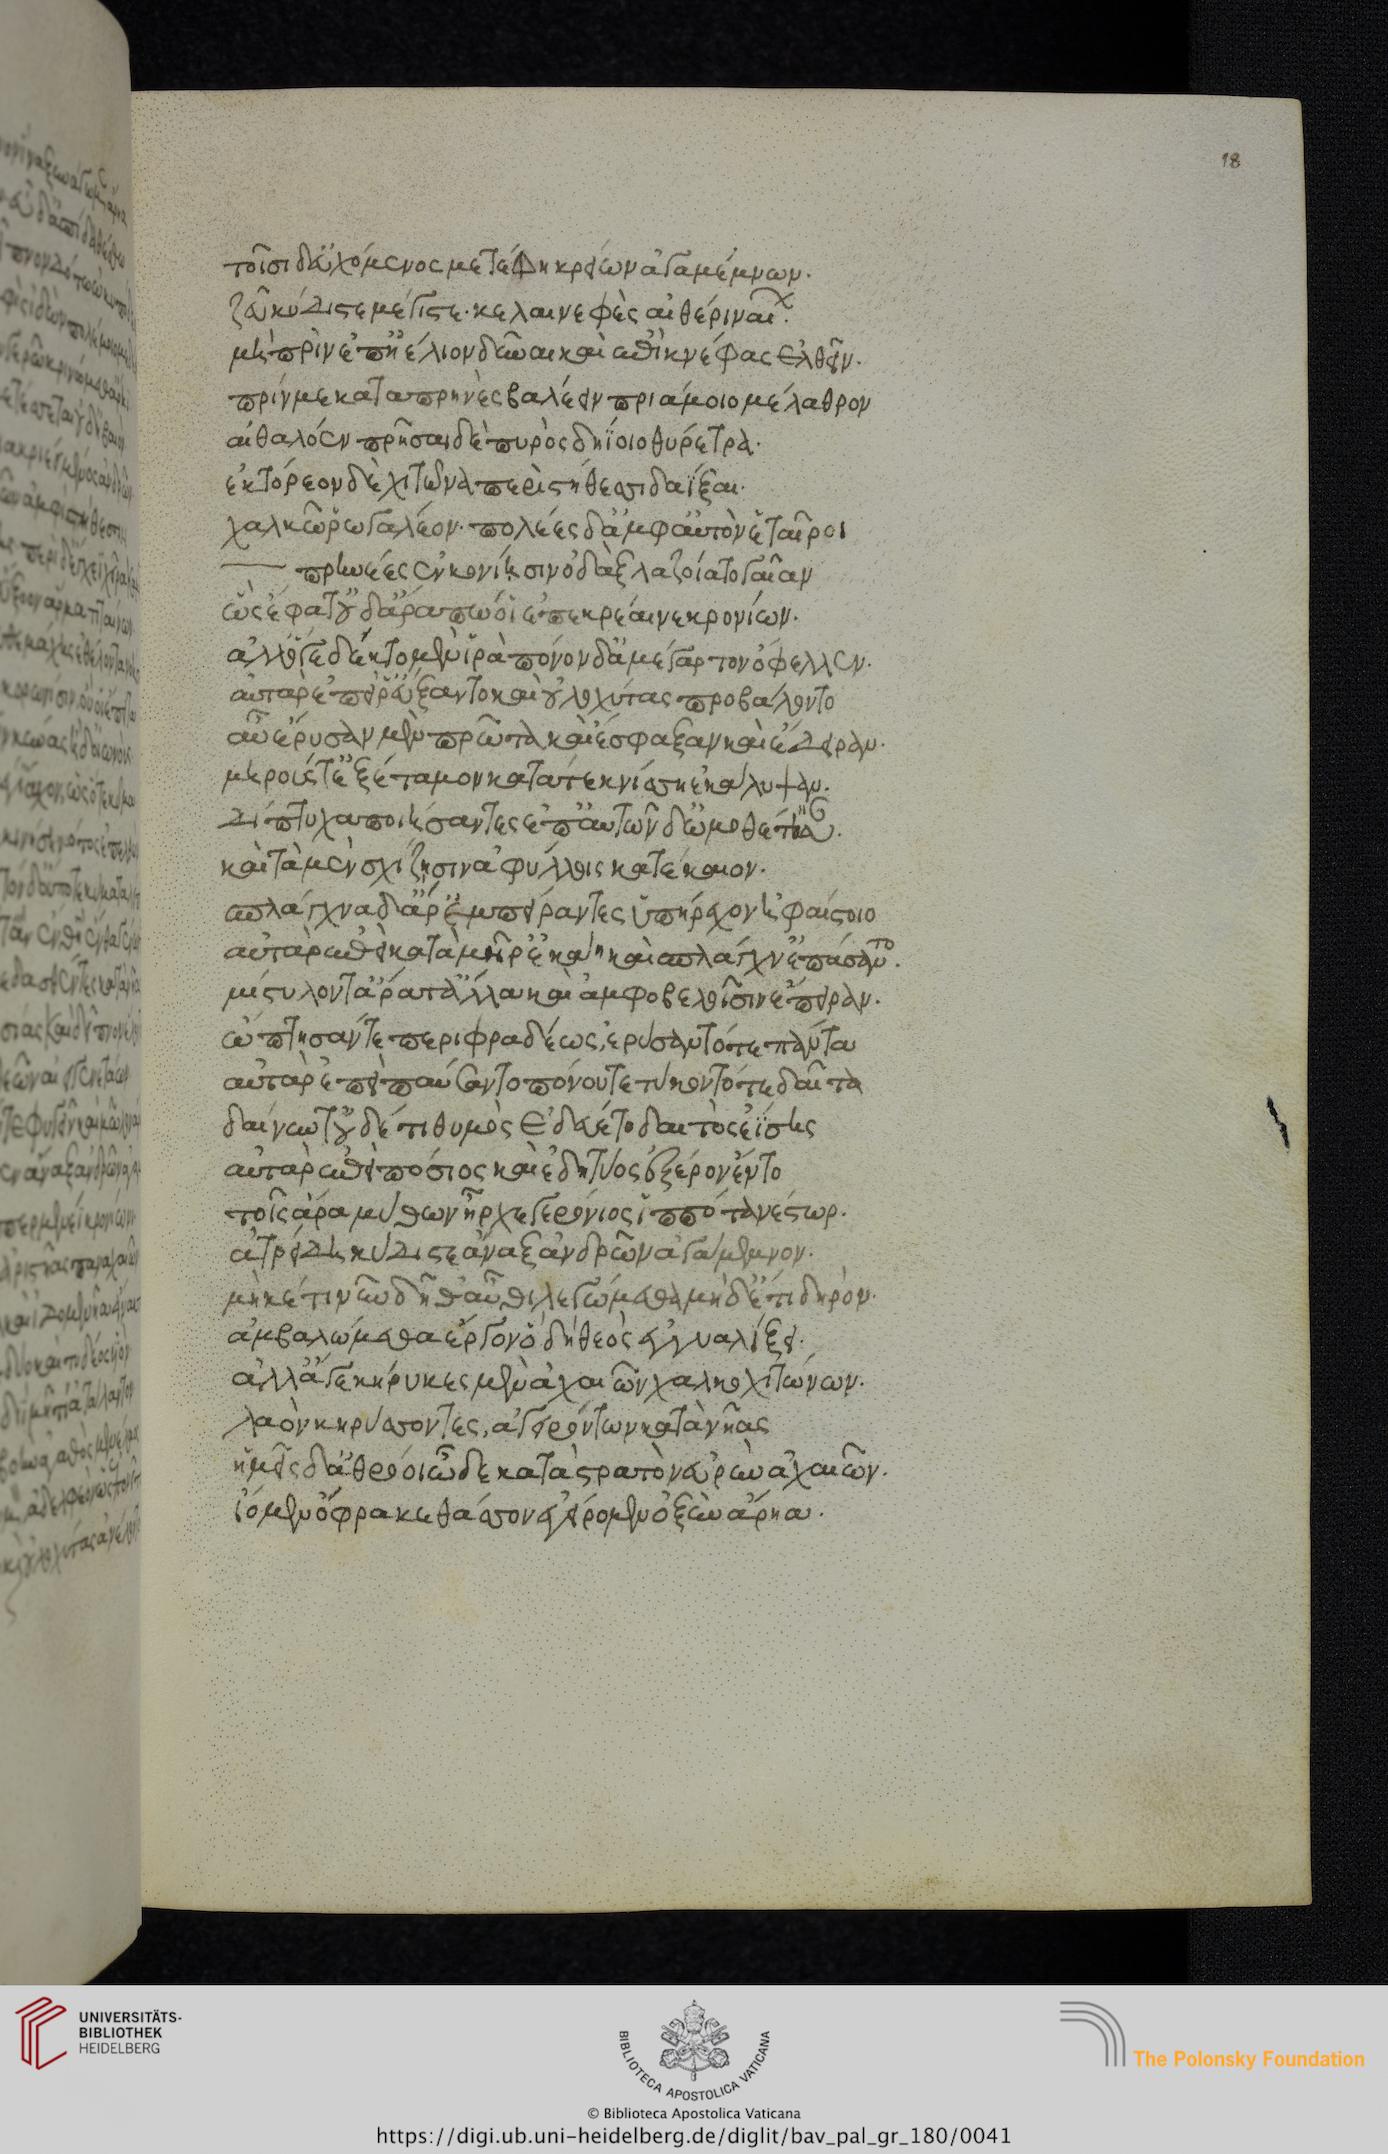 18
τοῖσι δ' εὐχόμενος μετέφη κρείων ἀγαμέμνων.
ζεῦ κύδιστε μέγιστε. κελαινεφὲς αἰθέρι ναί.
μὴ πρὶν ἐπ' ἠέλιον δῦναι καὶ ἐπὶ κνέφας ἐλθεῖν.
πρίν με κατα πρηνὲς βαλέειν πριάμοιο μέλαθρον
αἰθαλόεν πρῆσαι δὲ πυρὸς δηΐοιο θύρετρα.
ἑκτόρεον δὲ χιτῶνα περὶ στήθεσσι δαΐξαι.
χαλκῶ ῥωγαλέον. πολέες δ' ἀμφ' αὐτὸν ἑταῖροι
πρηνέες ἐν κονίησιν ὀδὰξ λαζοίατο γαῖαν
ὣς ἔφατ' οὐδ' ἄρα πώ οἱ ἐπεκρέαινε κρονίων.
ἀλλ' ὅγε δέκτο μὲν ἱρὰ πόνον δ' ἀμέγαρτον ὄφελλεν.
αὐτὰρ ἐπεί ῥ' εὔξαντο καὶ οὐλοχύτας προβάλοντο
αὖ ἔρυσαν μὲν πρῶτα καὶ ἔσφαξαν καὶ ἔδειραν.
μηρούς τ' ἐξέταμον κατά τε κνίσση ἐκάλυψαν.
δίπτυχα ποιήσαντες ἐπ' αὐτῶν δ' ὠμοθέτησαν.
καὶ τὰ μὲν σχίζησιν ἀφύλλοις κατέκαιον.
σπλάγχνα δ' ἄρ' ἐμπείραντες ὑπήρεχον ἡφαίστοιο
αὐτὰρ ἐπεὶ κατὰ μῆρ' ἐκάη καὶ σπλάγχν' ἐπάσαντο.
μίστυλόν τ' ἄρα τἄλλα καὶ ἀμφ' ὀβελοῖσιν ἔπειραν.
ὤπτησάν τε περιφραδέως, ἐρύσαντό τε πάντα
αὐτὰρ ἐπεὶ παύσαντο πόνου τετύκοντό τε δαῖτα
δαίνυντ' οὐδέ τι θυμὸς ἐδεύετο δαιτὸς ἐΐσης
αὐτὰρ ἐπεὶ πόσιος καὶ ἐδητύος ἐξ ἔρον ἕντο
τοῖς ἄρα μύθων ἦρχε γερήνιος ἱππότα νέστωρ.
ἀτρείδη κύδιστε ἄναξ ἀνδρῶν ἀγάμεμνον.
μηκέτι νῦν δῆθ' αὖθι λεγώμεθα μηδ' ἔτι δηρὸν.
ἀμβαλώμεθα ἔργον ὃ δὴ θεὸς ἐγγυαλίξει.
ἀλλ' ἄγε κήρυκες μὲν ἀχαιῶν χαλκοχιτώνων.
λαὸν κηρύσσοντες, ἀγειρόντων κατὰ νῆας
ἡμεῖς δ' ἀθρόοι ὧδε κατὰ στρατὸν εὐρὺν ἀχαιῶν.
ἴομεν ὄφρα κε θᾶσσον ἐγείρομεν ὀξὺν ἄρηα.
UNIVERSITÄTS-
BIBLIOTHEK
HEIDELBERG
BIBLIOTECA APOSTOLICA VATICANA
The Polonsky Foundation
© Biblioteca Apostolica Vaticana
https://digi.ub.uni-heidelberg.de/diglit/bav_pal_gr_180/0041